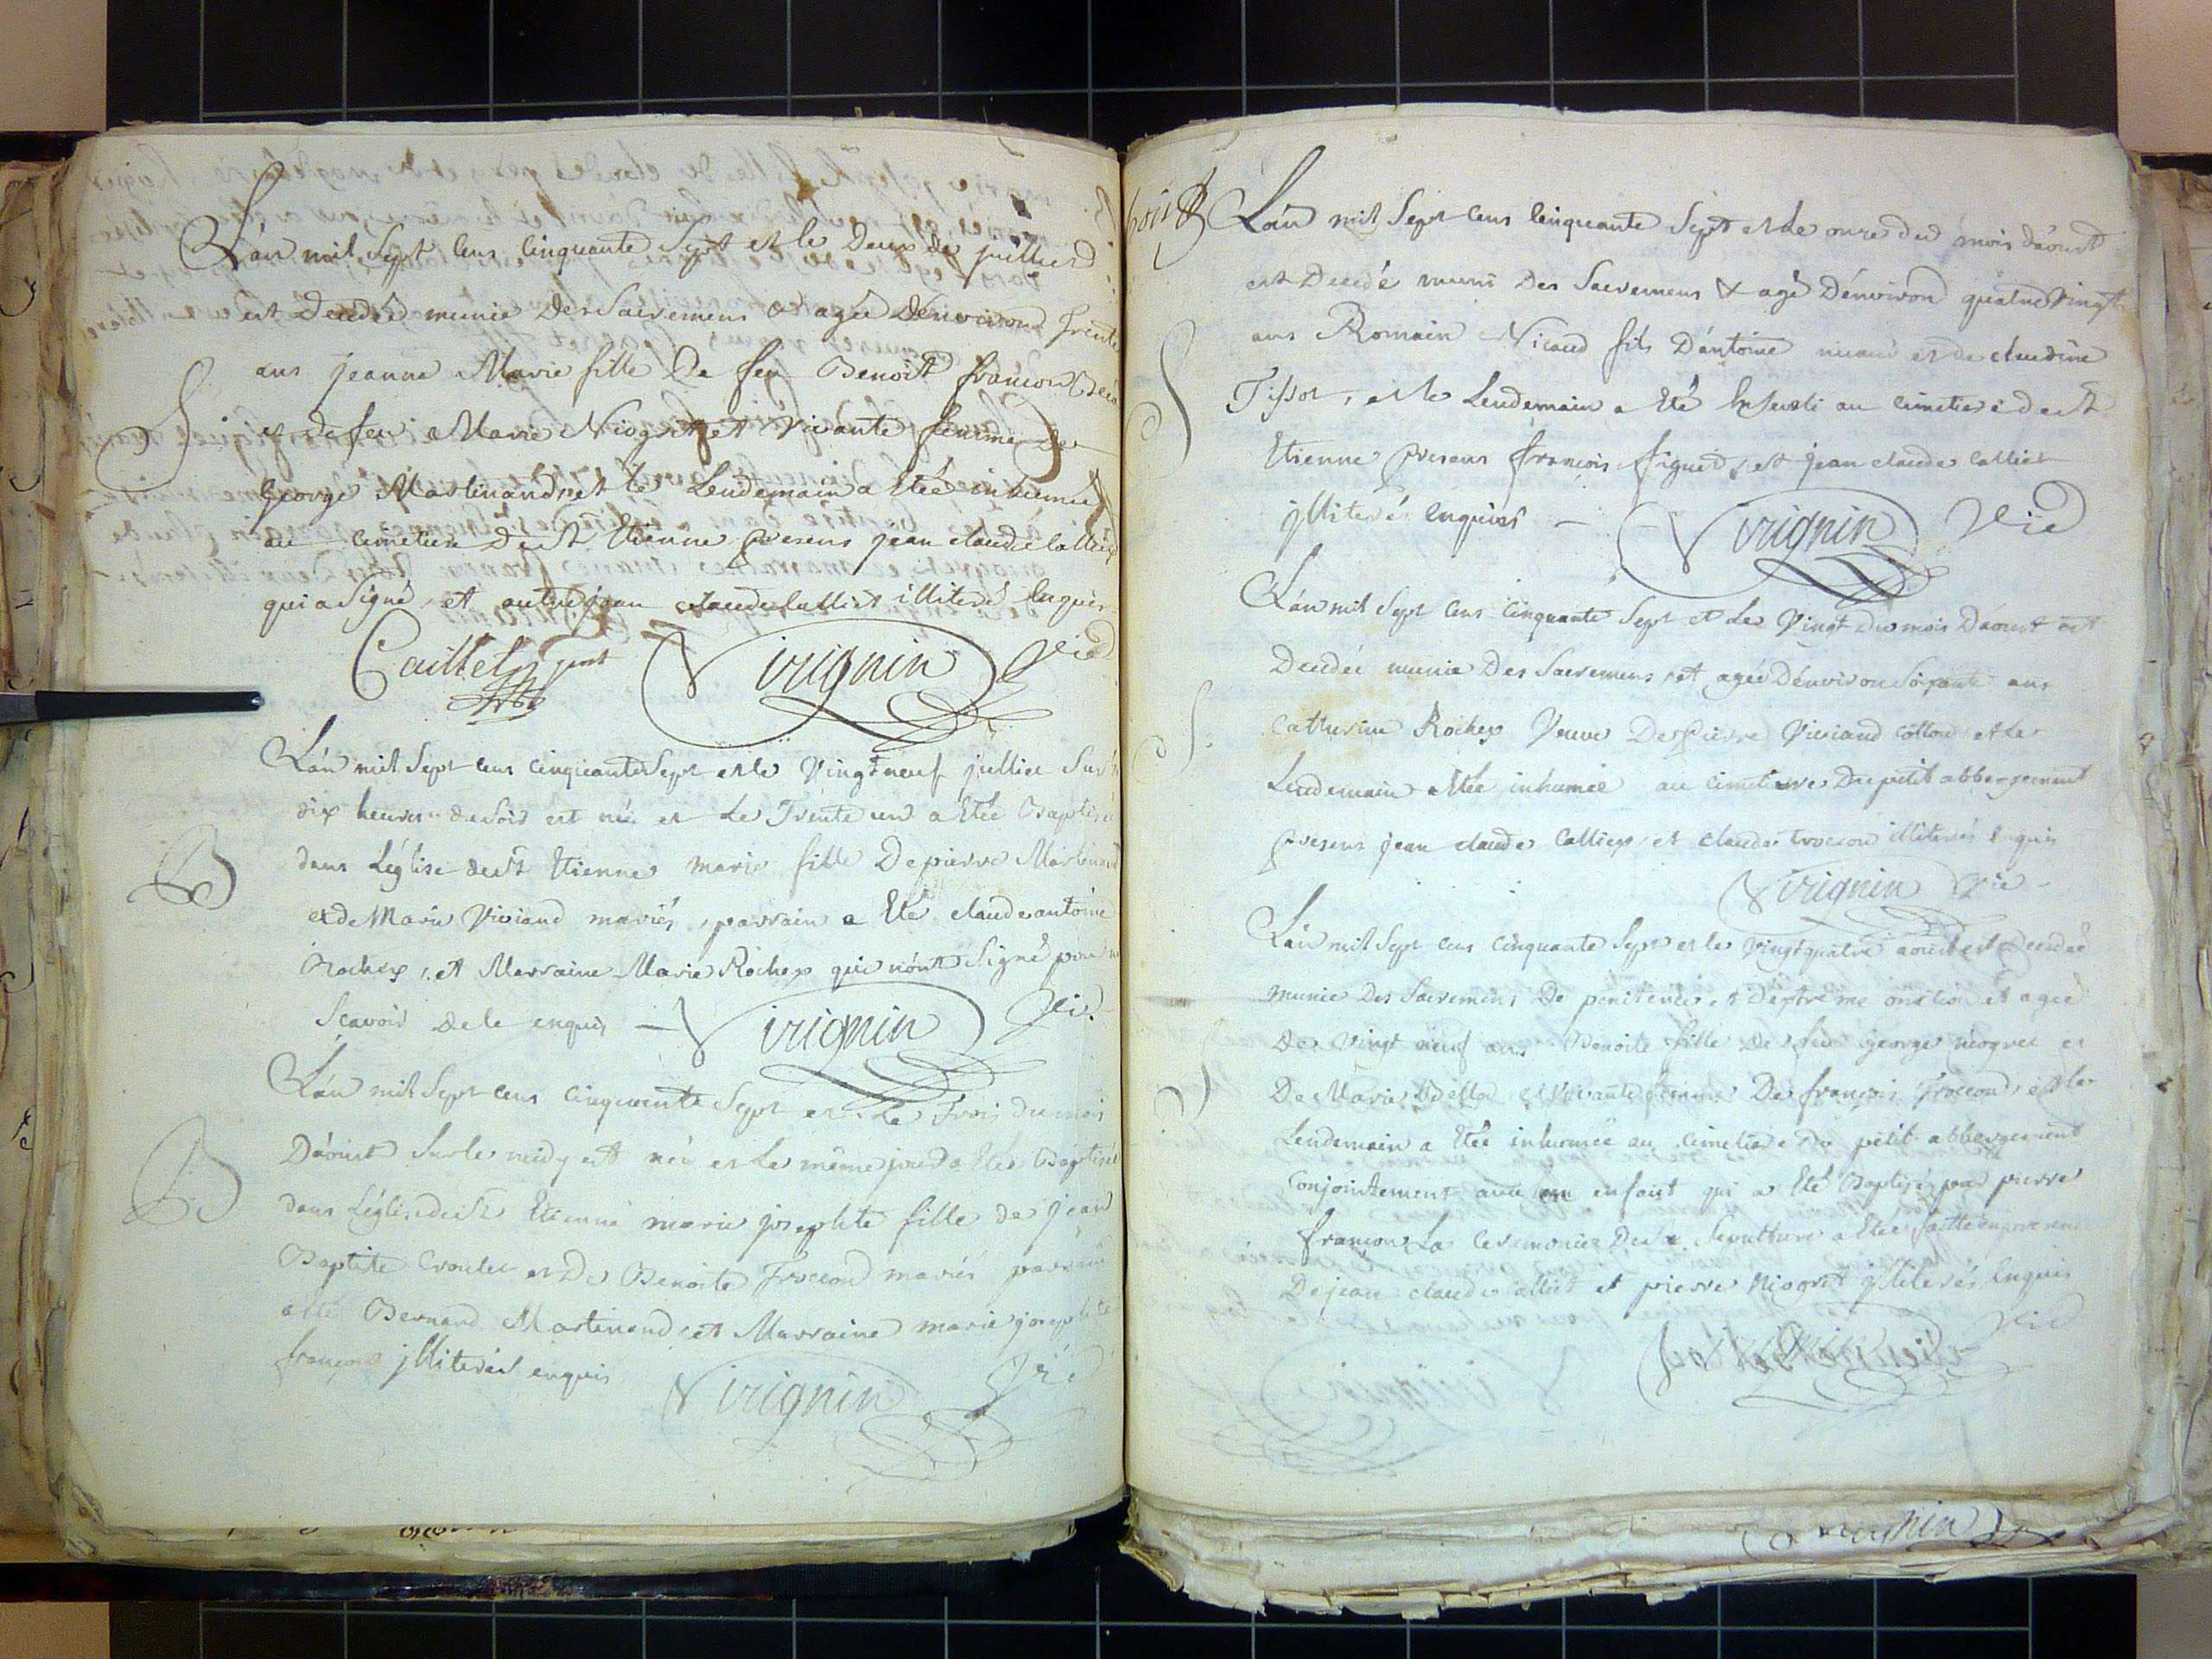 L'an mil Sept Cens Cinquante Sept et le Deux de juillied
est Decedeé munie Des Sacremens & ageé D'environ trente
ans jeanne Marie fille De feu Benoist françon
S
et de feu Marie Niogret et vivante femme De
George Martinand, et le Lendemain a Eteé inhumeé
au Cimetiere De St Etienne presens jean claude Calliet
qui a Signé, et autre jean claude Calliet illiteré Enquis
Caillet pnt Virignin Vic
L'an mil Sept Cens Cinquante Sept et le Vingt neuf jullied Sur
dix heures du Soir est née et Le Trente un a Eteé Baptiseé
B
dans L'églize de St Etienne marie fille De pierre Martinand
et de Marie Viviand mariés, parrain a Eté claude antoine
Rochex, et Marraine Marie Rochex qui n'ont Signé pour ne
Scavoir de le enquis — Virignin Vic.
L'an mil Sept Cens Cinquante Sept et Le Trois du mois
D'áoust Sur le midy est née et Le même jour a Eteé Baptiseé
B
dans L'églize de St Etienne marie josephte fille de jean
Baptiste et De Benoite Troccond mariés parrain
a Eté Bernard Martinand, et Marraine marie josephte
françond jlliterés enquis
Virignin Vic
L'an mil Sept Cens Cinquante Sept et Le onze du mois d'áoust
est Decedé muni Des Sacremens & agé D'énviron quatre Vingt
ans Romain Nicaud fils D'antoine nicaud et de claudine
S
Tissot, et le Lendemain a Eté Enseveli au cimetiere de St
Etienne presens françois figuet, et jean claude Calliet
jlliterés enquis — Virignin Vic
L'an mil Sept Cens Cinquante Sept et Le Vingt Du mois Daoust est
Decedeé munie Des Sacremens, et ageé D'énviron Soixante ans
S:
Catherine Rochex Veuve De pierre Viviand cotton et Le
Lendemain a Eteé inhumeé au Cimetiere Du petit abbergement
presens jean claude Calliex, et claude troccon illiterés Enquis
Virignin Vic
L'an mil Sept Cens Cinquante Sept et le Vingt quatre aoust est Decedeé
munie Des Sacremens De penitence et D'extreme onction et ageé
De Vingt neuf ans Benoite fille De feu George niogret et
S
De Marie et Vivante femme De françois Troccond, et le
Lendemain a Eteé inhumeé au Cimetiere Du petit abbergement
Conjointement avec un enfant qui a Eté Baptisé par pierre
françon La Ceremonie De la Sepulture a Eteé faitte en presence
De jean claude Calliet et pierre Niogret jlliterés Enquis
Vic